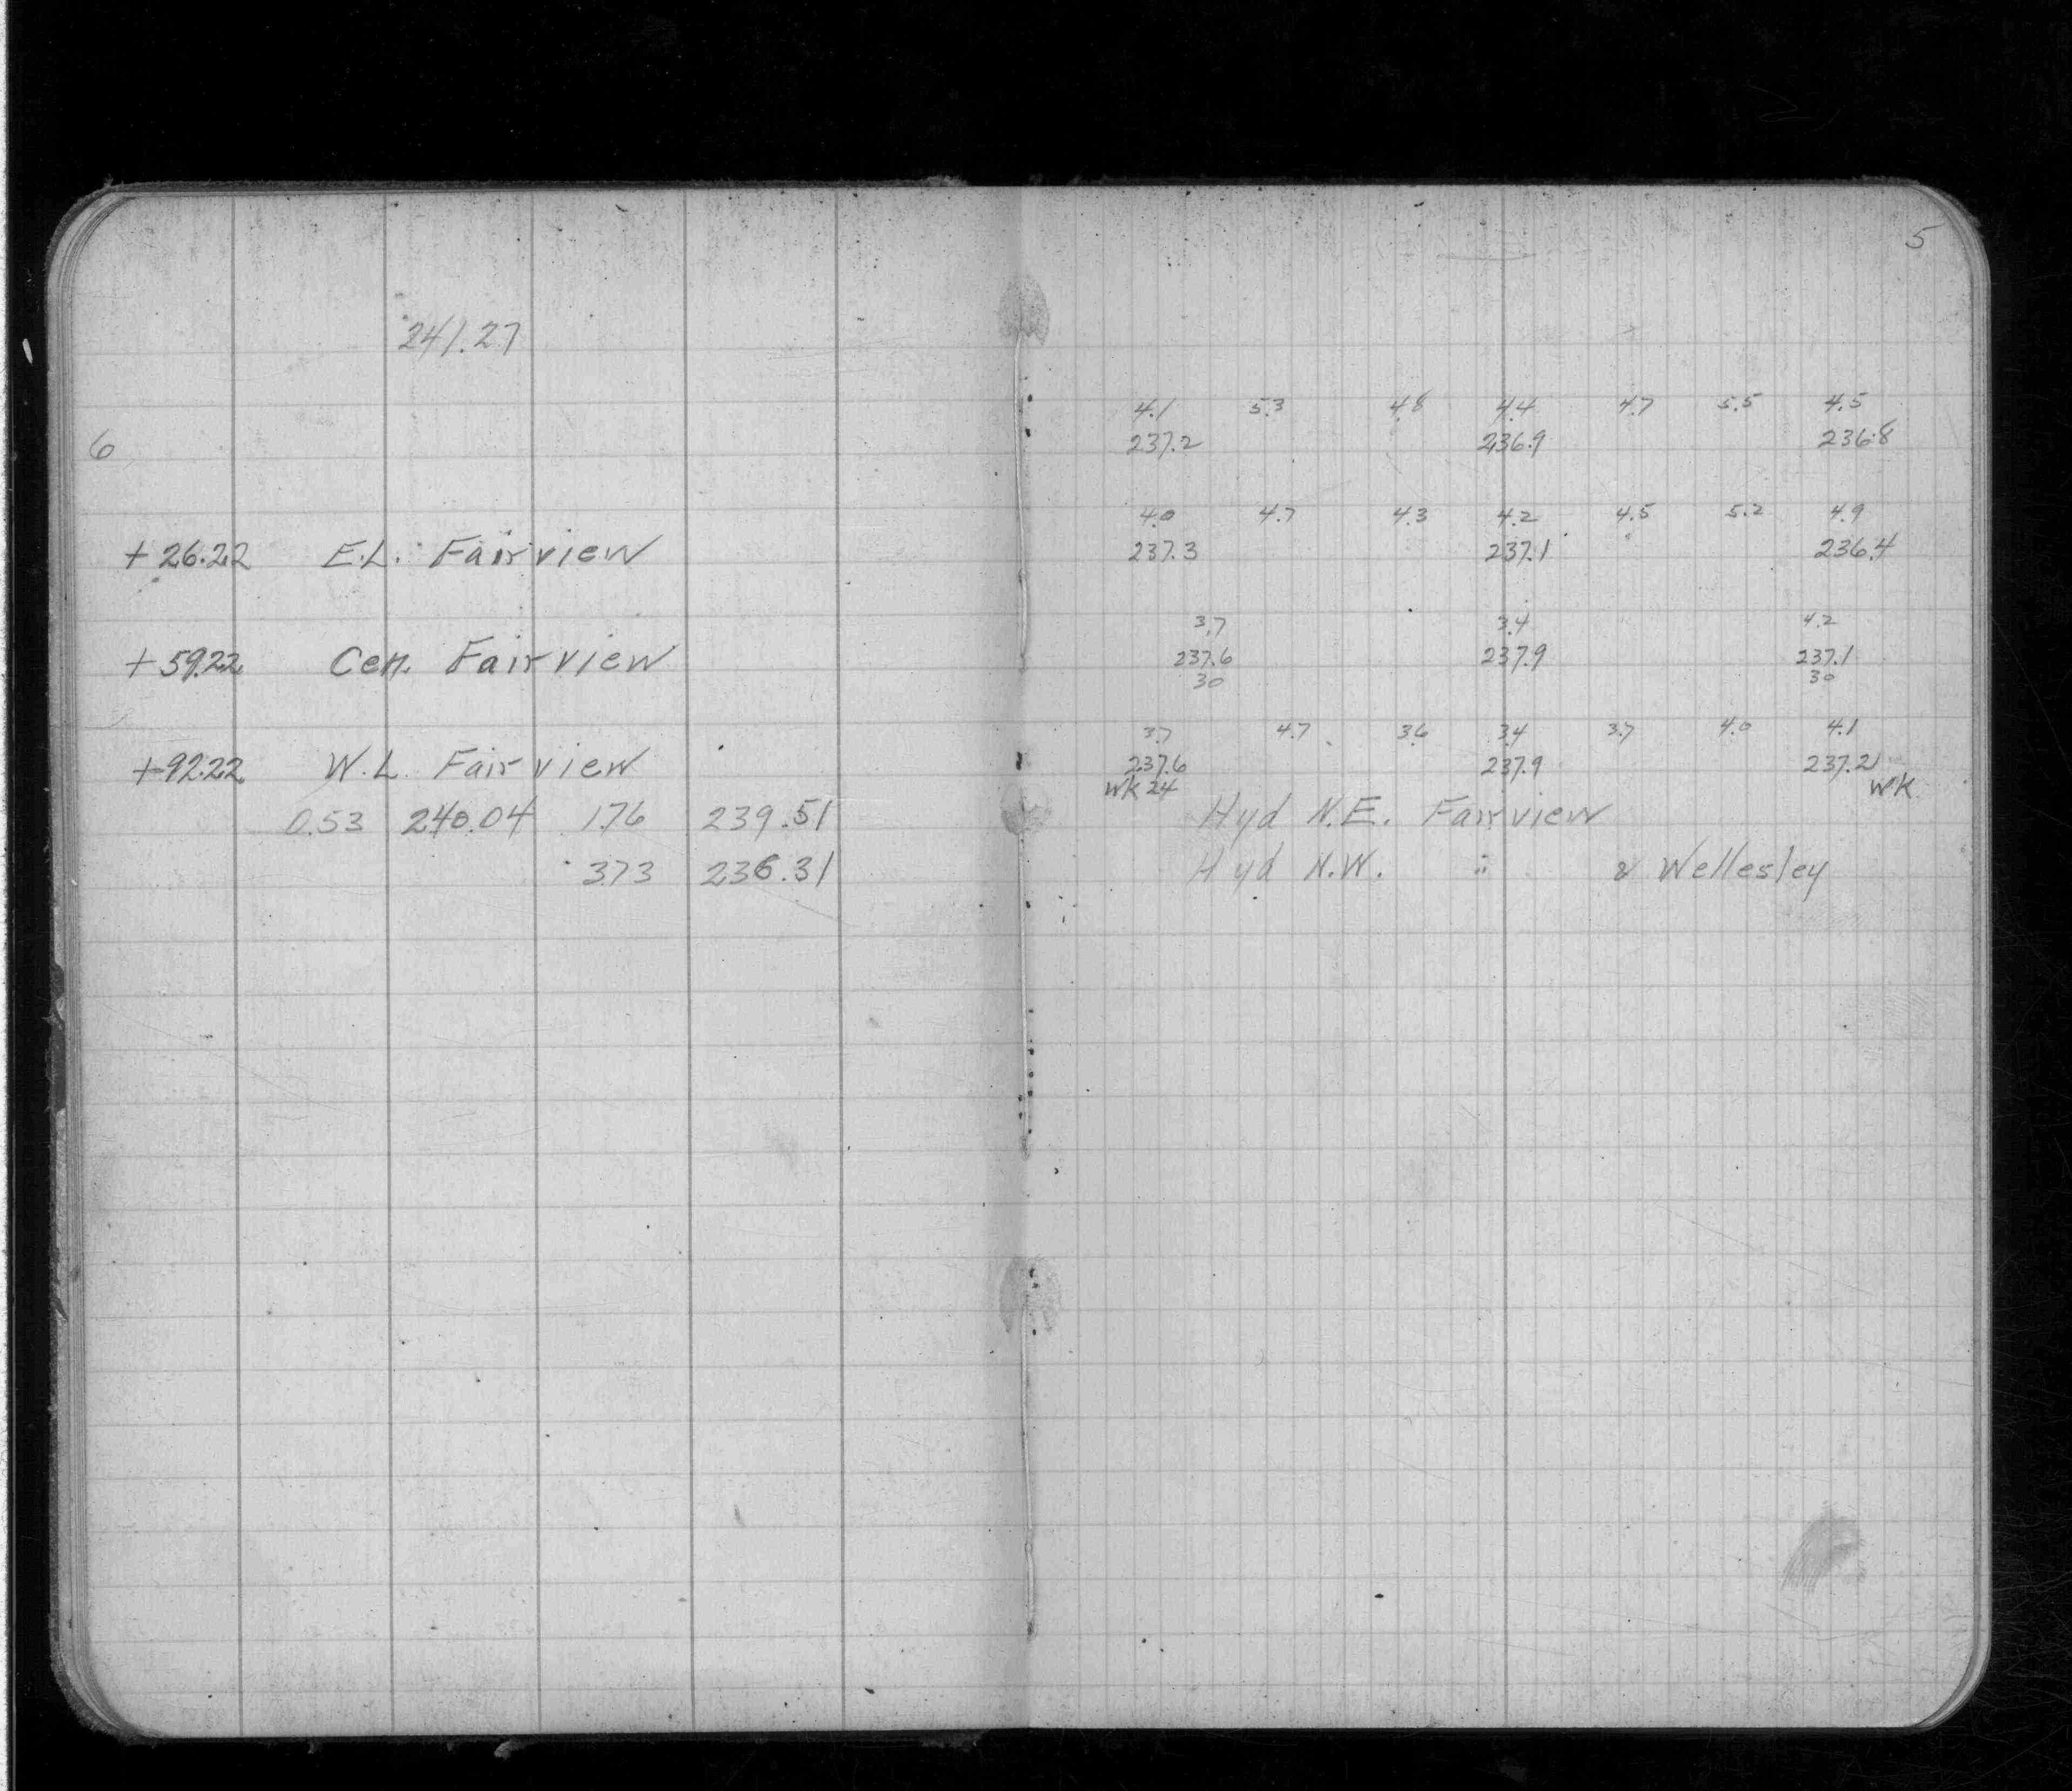 5
241.27
4.1 5.3 4.8 4.4 4.7 5.5 4.5
6 237.2 236.9 236.8
4.0 4.7 4.3 4.2 4.5 5.2 4.9
+26.22 E.L. Fairview 237.3 237.1 236.4
3.7 3.4 4.2
+59.22 Cen. Fairview 237.6 237.9 237.1
30 30
3.7 4.7 3.6 3.4 3.7 4.0 4.1
+92.22 W.L. Fairview 237.6 237.9 237.2
Wk 24 Wk
0.53 240.04 1.76 239.51 Hyd N.E. Fairview
3.73 236.31 Hyd N.W. " & Wellesley